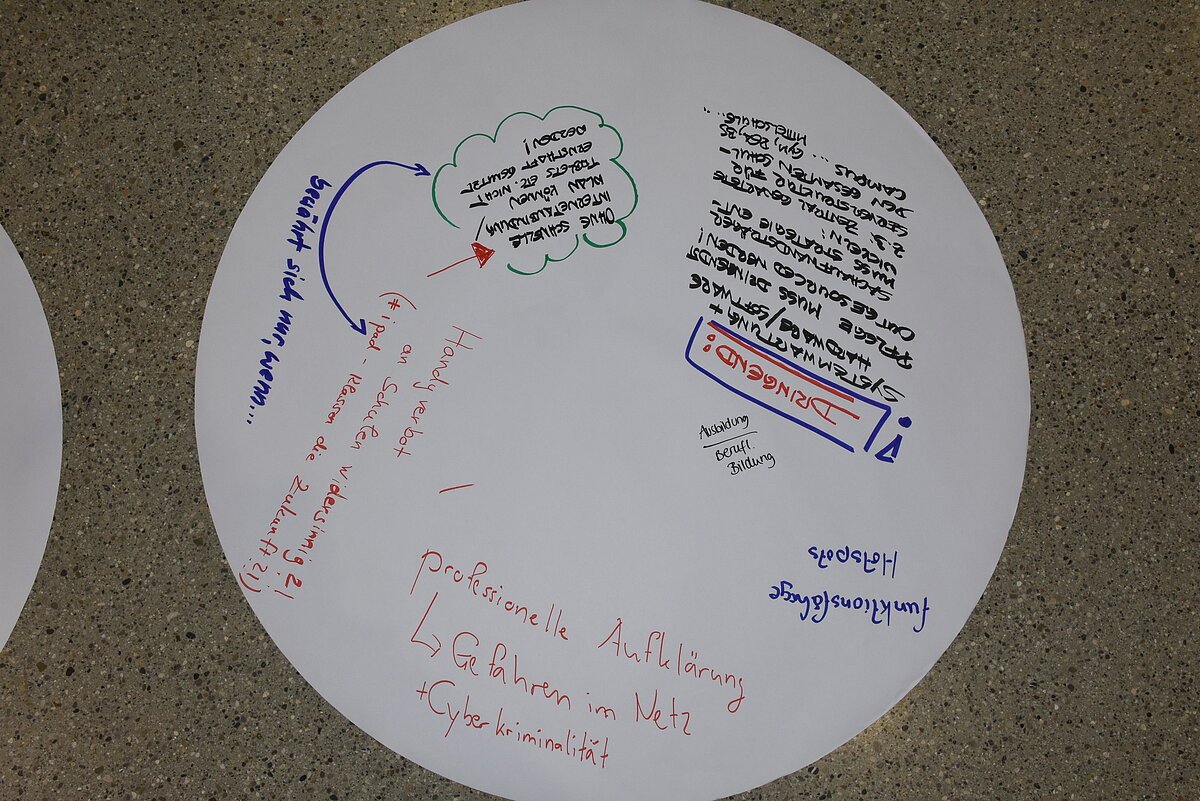 OHNE SCHNELLE
INTERNETANBINDUNG
KLAN KÖNNEN
TABLETS ETC. NICHT
ERNSTHAFT GENUTZT
WERDEN!
bewährt sich nur, wenn...
Handyverbot
an Schulen widersinnig ?!
(# ipad-Klassen die Zukunft ?!)
DRINGEND:
SYSTEMWARTUNG +
HARDWARE/SOFTWARE
PFLEGE MUSS DRINGENDST
OUTGESOURCED WERDEN!
SACHAUFWANDSTRÄGER
MUSS STRATEGIE ENT-
WICKELN:
z.B. ZENTRAL GEWARTETE
SERVERSTRUKTUR FÜR
DEN GESAMTEN SCHUL-
CAMPUS
... GYM, REA, BS
MITTELSCHULE ...
Ausbildung
Berufl.
Bildung
funktionsfähige
Hotspots
professionelle Aufklärung
↳ Gefahren im Netz
+Cyberkriminalität